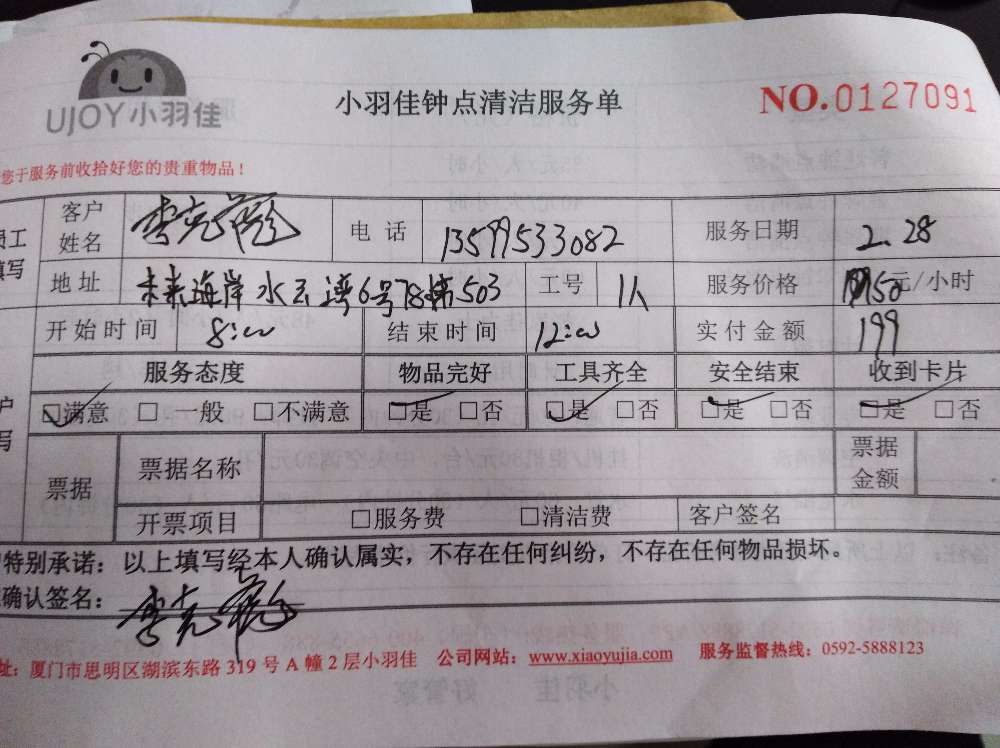 UJOY小羽佳
小羽佳钟点清洁服务单
NO.0127091
您于服务前收拾好您的贵重物品！
员工
填写
客户
姓名
李克
电 话
13599533082
服务日期
2.28
地址
未来海岸水云湾6号78梯503
工号
1人
服务价格
50元/小时
开始时间
8:00
结束时间
12:00
实付金额
199
服务态度
物品完好
工具齐全
安全结束
收到卡片
户
写
☑满意 □一般 □不满意
☑是 □否
☑是 □否
☑是 □否
☑是 □否
票据
票据名称
票据
金额
开票项目
□服务费 □清洁费
客户签名
特别承诺：以上填写经本人确认属实，不存在任何纠纷，不存在任何物品损坏。
确认签名：
李克
址：厦门市思明区湖滨东路 319 号 A 幢 2 层小羽佳 公司网站：www.xiaoyujia.com 服务监督热线：0592-5888123